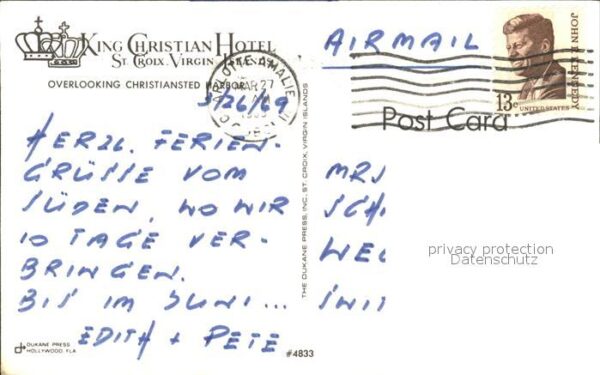 KING CHRISTIAN HOTEL
ST. CROIX, VIRGIN
OVERLOOKING CHRISTIANSTED HARBOR
AIRMAIL
JOHN F. KENNEDY
13c
UNITED STATES
CHARLOTTE AMALIE
MAR 27
Post Card
3/26/69
HERZL. FERIEN-
GRÜSSE VOM
SÜDEN, WO WIR
10 TAGE VER-
BRINGEN.
BIS IM JUNI...
EDITH + PETE
THE DUKANE PRESS, INC. ST. CROIX, VIRGIN ISLANDS
MRS
SCH
WE
SWIT
privacy protection
Datenschutz
DUKANE PRESS
HOLLYWOOD, FLA
#4833